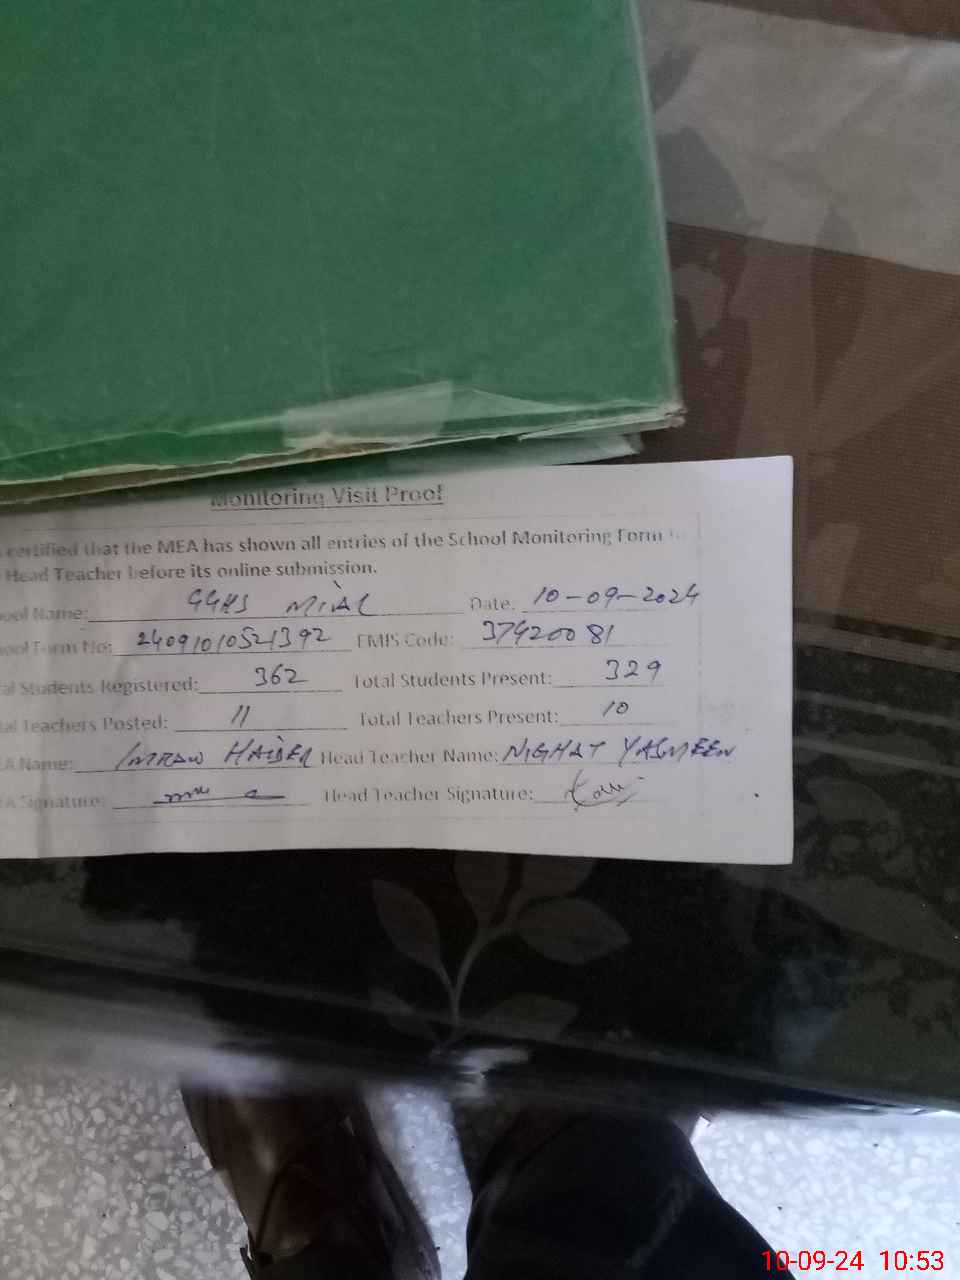 Monitoring Visit Proof
certified that the MEA has shown all entries of the School Monitoring Form to
Head Teacher before its online submission.
ool Name: GGHS MIAL Date. 10-09-2024
ool Form No: 24091010521392 EMIS Code: 37420081
al Students Registered: 362 Total Students Present: 329
al Teachers Posted: 11 Total Teachers Present: 10
A Name: IMRAN HAIDER Head Teacher Name: NIGHAT YASMEEN
A Signature: Head Teacher Signature:
10-09-24 10:53